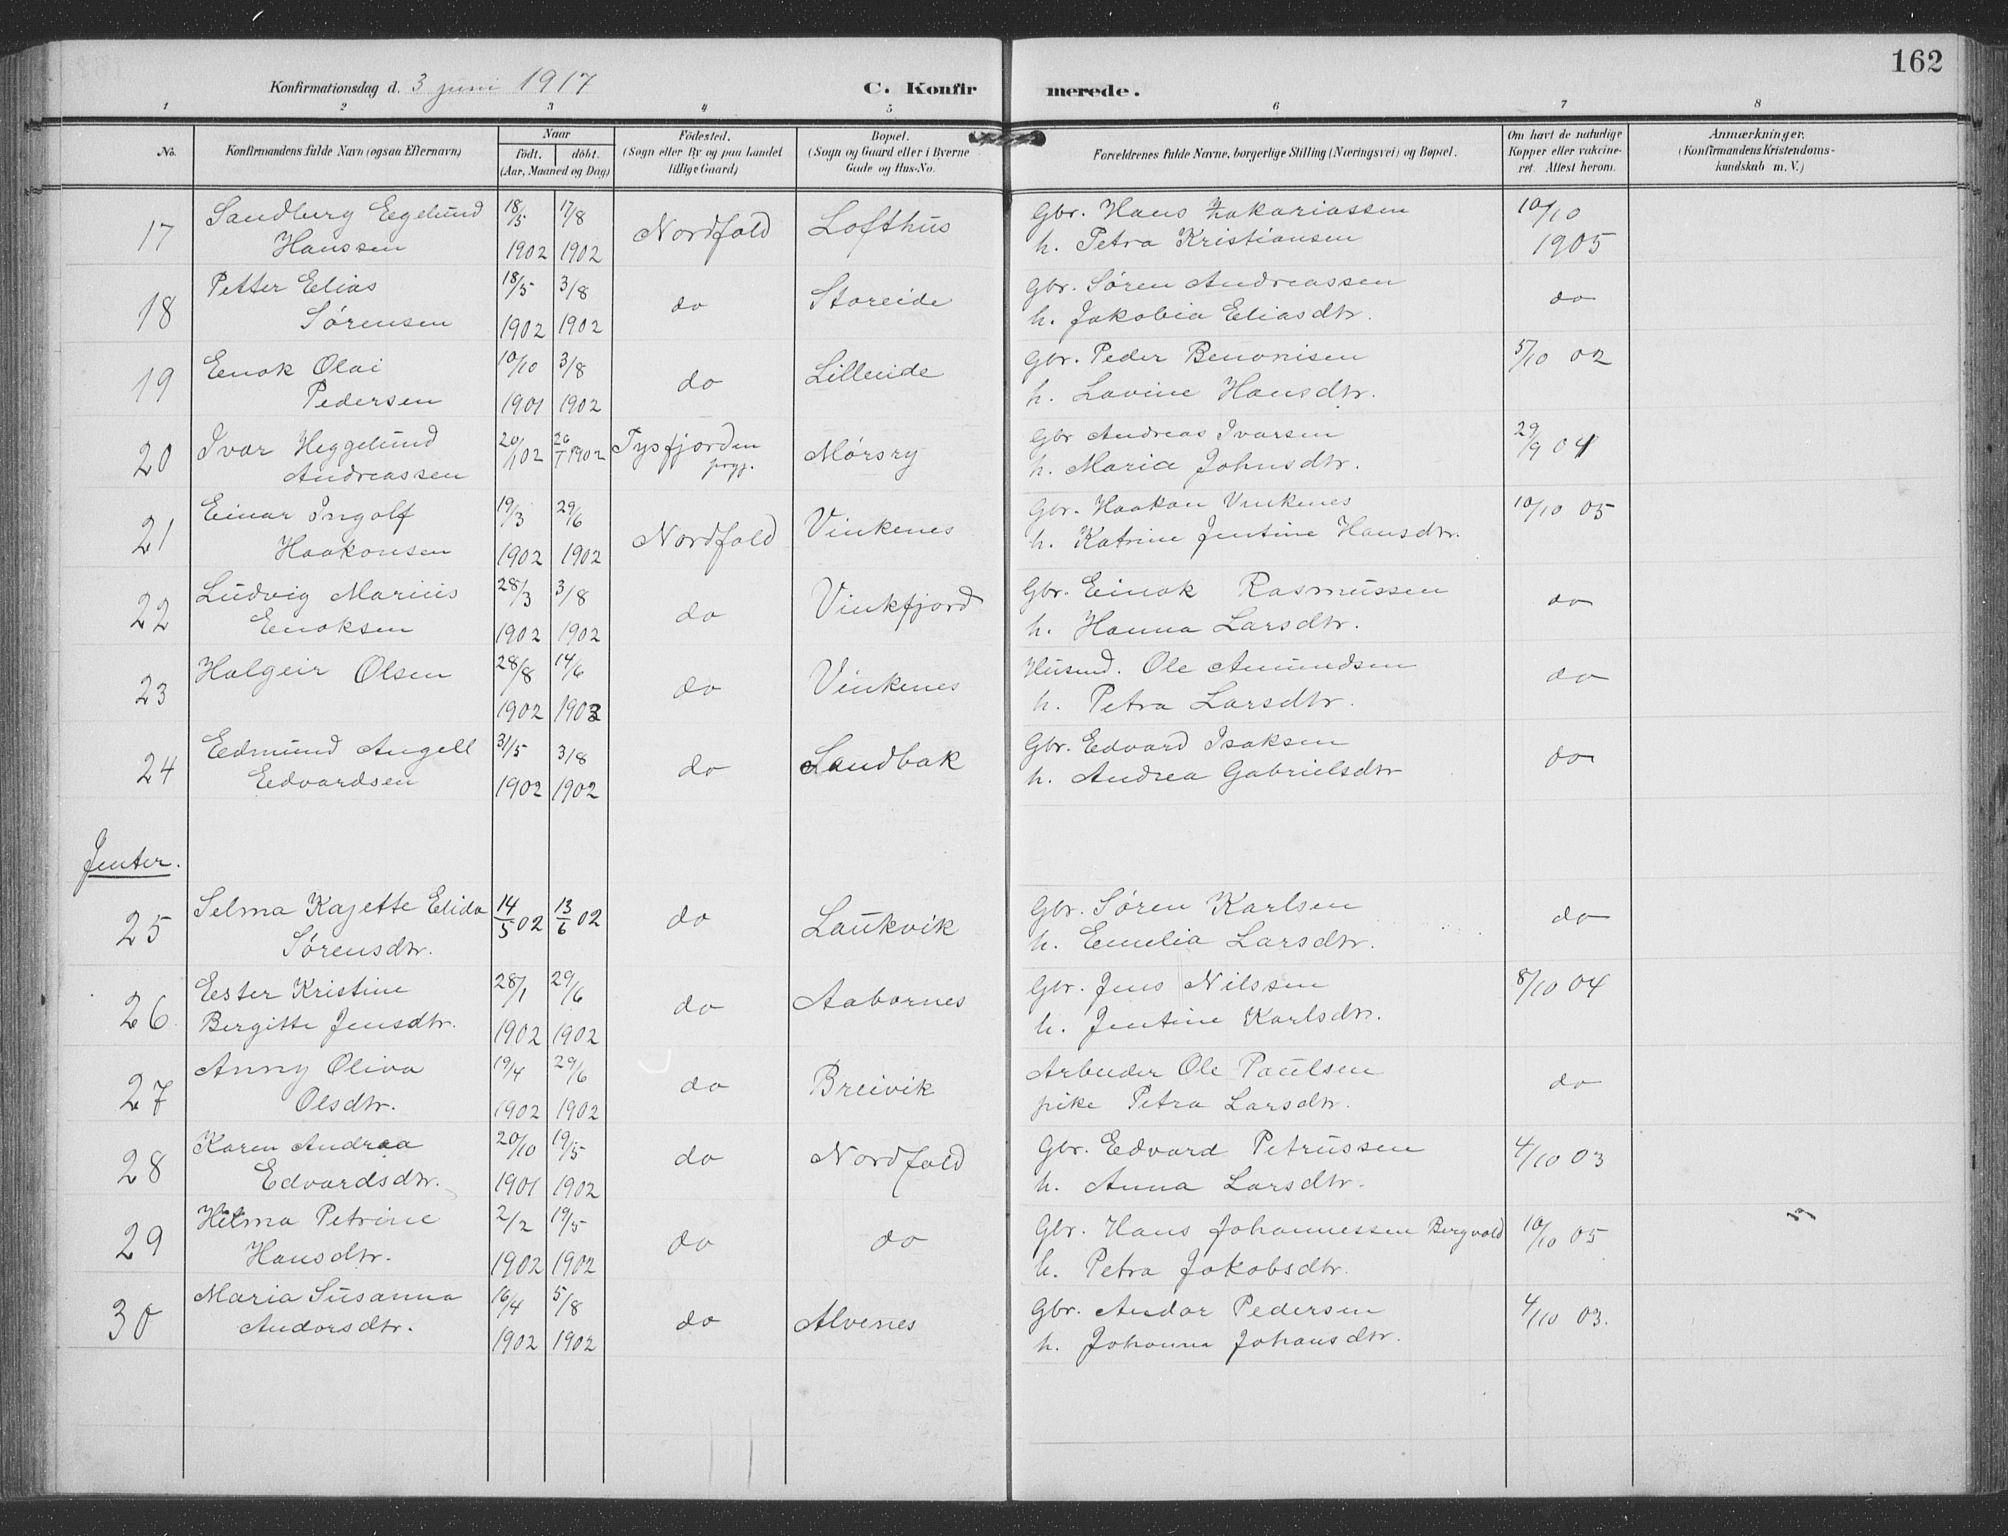 162
Konfirmationsdag d. 3 juni 1917
C. Konfirmerede.
1 2 3 4 5 6 7 8
No.
Konfirmandens fulde Navn (ogsaa Efternavn)
Naar
født. døbt.
(Aar, Maaned og Dag)
Fødested.
(Sogn eller By og paa Landet
tillige Gaard)
Bopæl.
(Sogn og Gaard eller i Byerne
Gade og Hus-No.
Forældrenes fulde Navne, borgerlige Stilling (Næringsvei) og Bopæl.
Om havt de naturlige
Kopper eller vakcine-
ret. Attest herom.
Anmærkninger.
(Konfirmandens Kristendoms-
kundskab m. V.)
17 Sandberg Eegelund 18/5 17/8 Nordfold Lofthus Gbr. Hans Zakariassen 10/10
Hanssen 1902 1902 h. Petra Kristiansen 1905
18 Petter Elias 18/5 3/8 do Storeide Gbr. Søren Andreassen do
Sørensen 1902 1902 h. Jakobia Eliasdtr.
19 Enok Olai 10/10 3/8 do Lilleeide Gbr. Peder Benonisen 5/10 02
Pedersen 1901 1902 h. Lavine Hansdtr.
20 Ivar Heggelund 20/1 02 20/7 1902 Tysfjorden Mørsry Gbr Andreas Ivarsen 29/9 04
Andreassen prgj. h. Maria Johnsdtr.
21 Einar Ingolf 19/3 29/6 Nordfold Vinkenes Gbr. Haakon Vinkenes 10/10 05
Haakonsen 1902 1902 h. Katrine Jentine Hansdtr.
22 Ludvig Marius 28/3 3/8 do Vinkfjord Gbr. Einok Rasmussen do
Enoksen 1902 1902 h. Hanna Larsdtr.
23 Holgeir Olsen 28/8 14/6 do Vinkenes Husmd. Ole Amundsen do
1902 1903 h. Petra Larsdtr.
24 Edmund Angell 31/5 3/8 do Sandbak Gbr. Edvard Isaksen do
Edvardsen 1902 1902 h. Andrea Gabrielsdtr
Jenter.
25 Selma Kajette Elida 14/5 02 13/6 02 do Laukvik Gbr. Søren Karlsen do
Sørensdtr. h. Emelia Larsdtr.
26 Ester Kristine 28/1 29/6 do Aabornes Gbr. Jens Nilssen 8/10 04
Bergitte Jensdtr. 1902 1902 h. Jentine Karlsdtr.
27 Anny Oliva 19/4 29/6 do Breivik Arbeider Ole Paulsen do
Olsdtr. 1902 1902 pike Petra Larsdtr.
28 Karen Andrea 20/10 19/5 do Nordfold Gbr. Edvard Petrussen 4/10 03
Edvardsdtr. 1901 1902 h. Anna Larsdtr.
29 Hilma Petrine 2/2 19/5 do do Gbr. Hans Johannessen Bergvold 10/10 05
Hansdtr. 1902 1902 h. Petra Jakobsdtr.
30 Maria Susanna 16/4 5/8 do Alvenes Gbr. Andor Pedersen 4/10 03.
Andorsdtr. 1902 1902 h. Johanna Johansdtr.